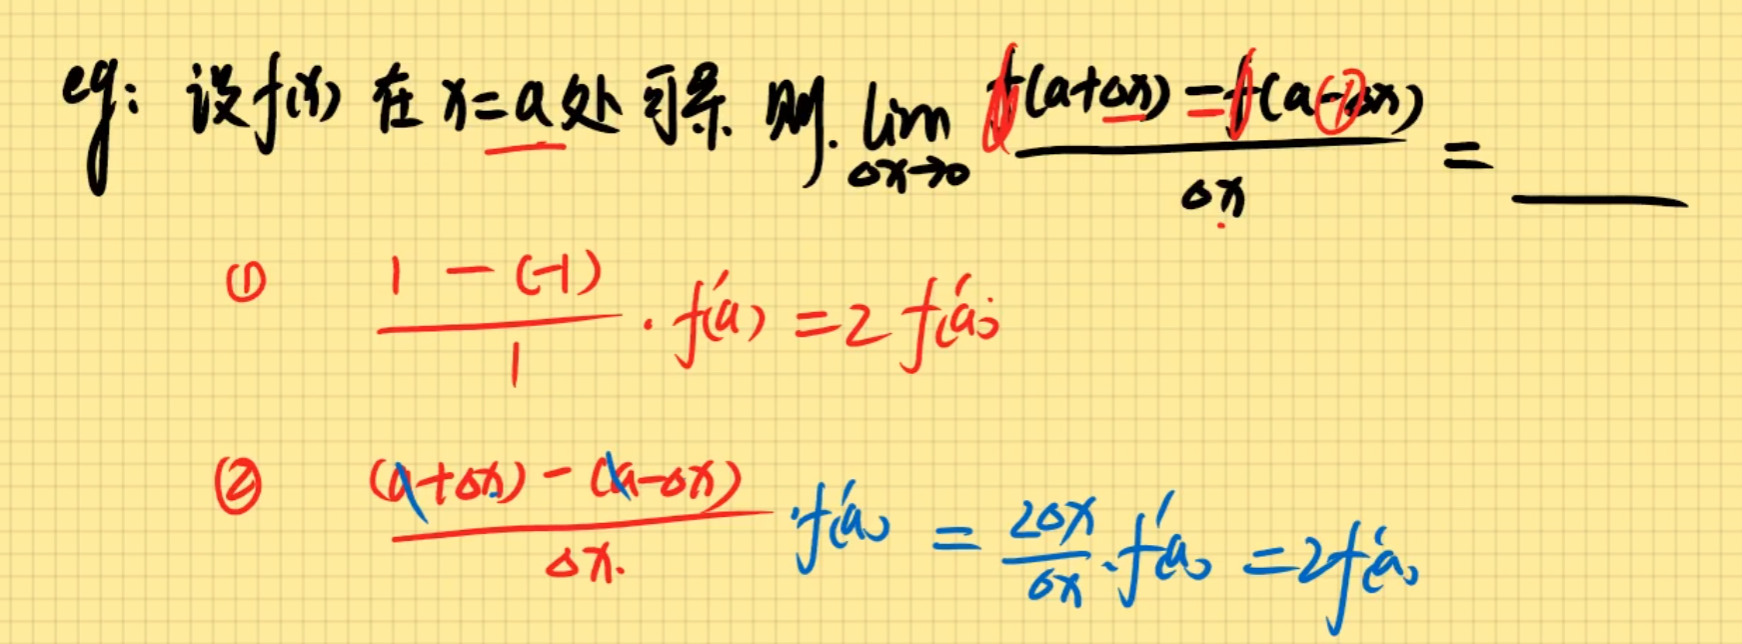 eg: 设f(x) 在 x=a处可导. 则. lim Δx→0 f(a+Δx)-f(a-Δx) / Δx = ____
① 1-(-1) / 1 · f'(a) = 2f'(a)
② (a+Δx)-(a-Δx) / Δx. · f'(a) = 2Δx / Δx · f'(a) = 2f'(a)